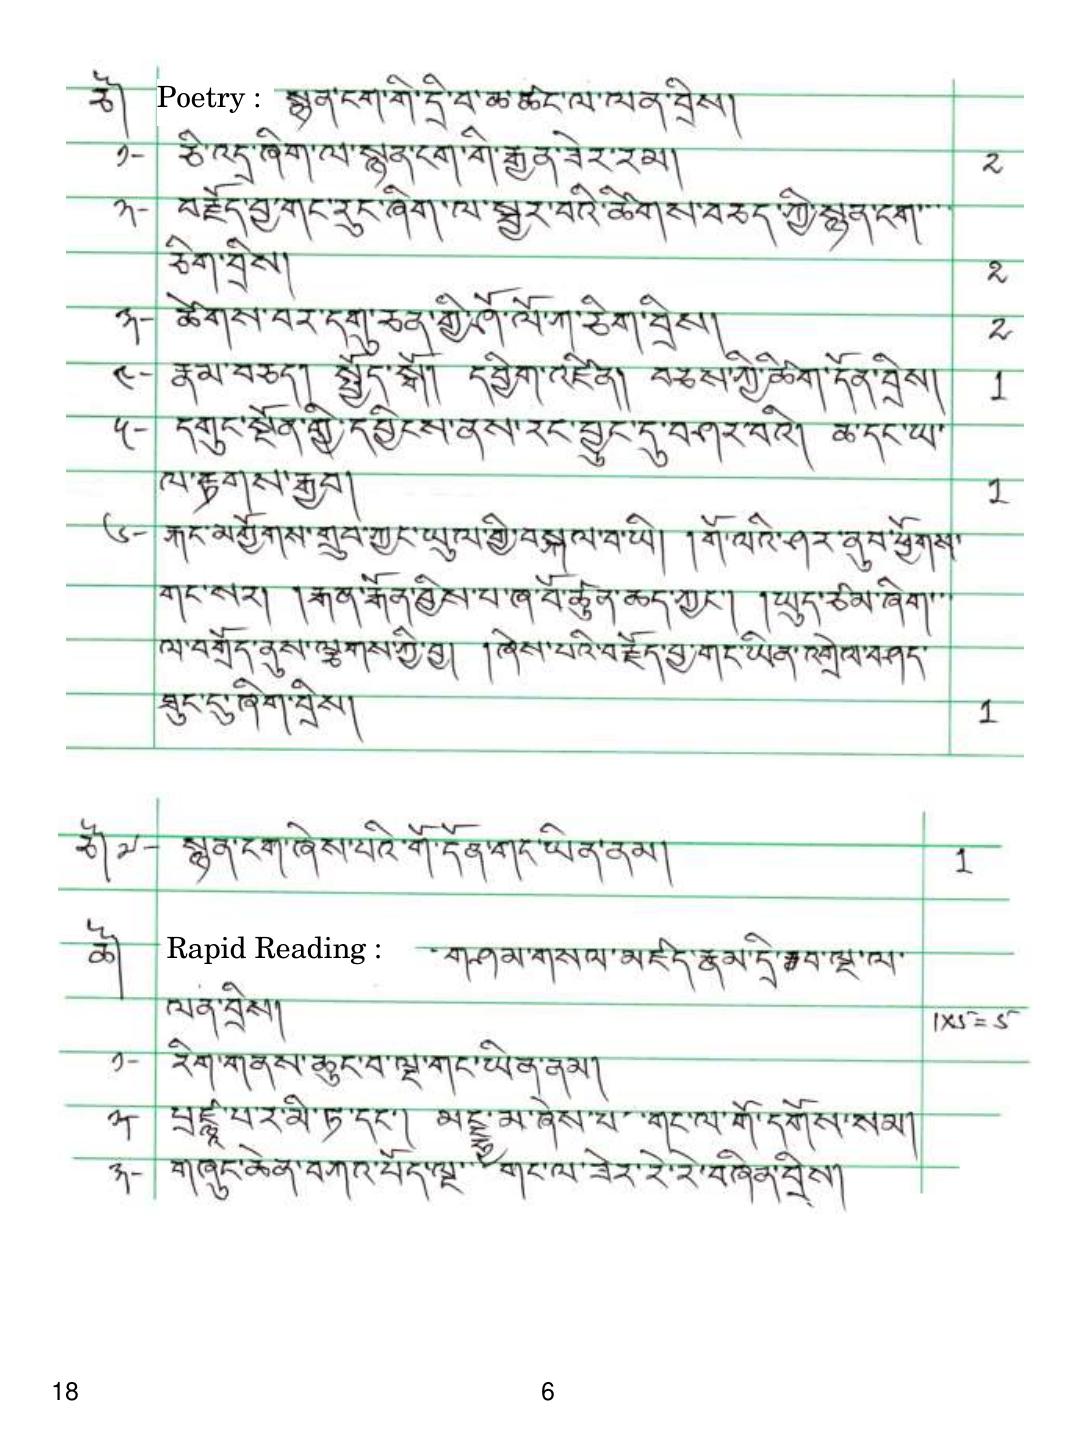 ཅོ། Poetry : སྙན་ངག་གི་དྲི་བ་ཆ་ཚང་ལ་ལན་བྲིས།
༡- ཅི་འདྲ་ཞིག་ལ་སྙན་ངག་གི་རྒྱན་ཟེར་རམ། 2
༢- བརྗོད་བྱ་གང་རུང་ཞིག་ལ་སྦྱར་བའི་ཚིགས་བཅད་ཀྱི་སྙན་ངག་
ཅིག་བྲིས། 2
༣- ཚིགས་བར་དགུ་ཅན་གྱི་ཤོ་ལོ་ཀ་ཅིག་བྲིས། 2
༤- རྣམ་བཅད། སྤྱོད་སྒོ། དབྱིག་འཛིན། བཅས་ཀྱི་ཚིག་དོན་བྲིས། 1
༥- དགུང་སྔོན་གྱི་དབྱིངས་ནས་རང་བྱུང་དུ་བཤར་བའི། ཆ་དང་ཡ་
ལ་རྟགས་རྒྱབ། 1
༦- རྐང་མགྱོགས་གྲུབ་ཀྱང་ཡུལ་གྱི་བསྐལ་བ་ཡི། །གོ་ལའི་ཤར་ནུབ་ཕྱོགས་
གང་སར། །རྒན་རྒོན་བྱིས་པ་ཞ་བོ་ཚུན་ཆད་ཀྱང་། །ཡུད་ཙམ་ཞིག་
ལ་བགྲོད་ནུས་ལྕགས་ཀྱི་བྱ། །ཞེས་པའི་བརྗོད་བྱ་གང་ཡིན་འགྲེལ་བཤད་
ཐུང་དུ་ཞིག་བྲིས། 1
སྙན་ངག་ཞེས་པའི་གོ་དོན་གང་ཡིན་ནམ། 1
ཆོ། Rapid Reading : གཤམ་གསལ་མཛད་རྣམ་དྲི་བ་ལྔ་ལ་
ལན་བྲིས། 1x5=5
༡- རིག་གནས་ཆུང་བ་ལྔ་གང་ཡིན་ནམ།
༢- པྲཛྙཱ་པ་ར་མི་ཏ་དང་། ཞེས་པ་ གང་ལ་གོ་དགོས་སམ།
༣- གཞུང་ཆེན་བཀའ་པོད་ལྔ་ གང་ལ་ཟེར་རེ་རེ་བཞིན་བྲིས།
18 6